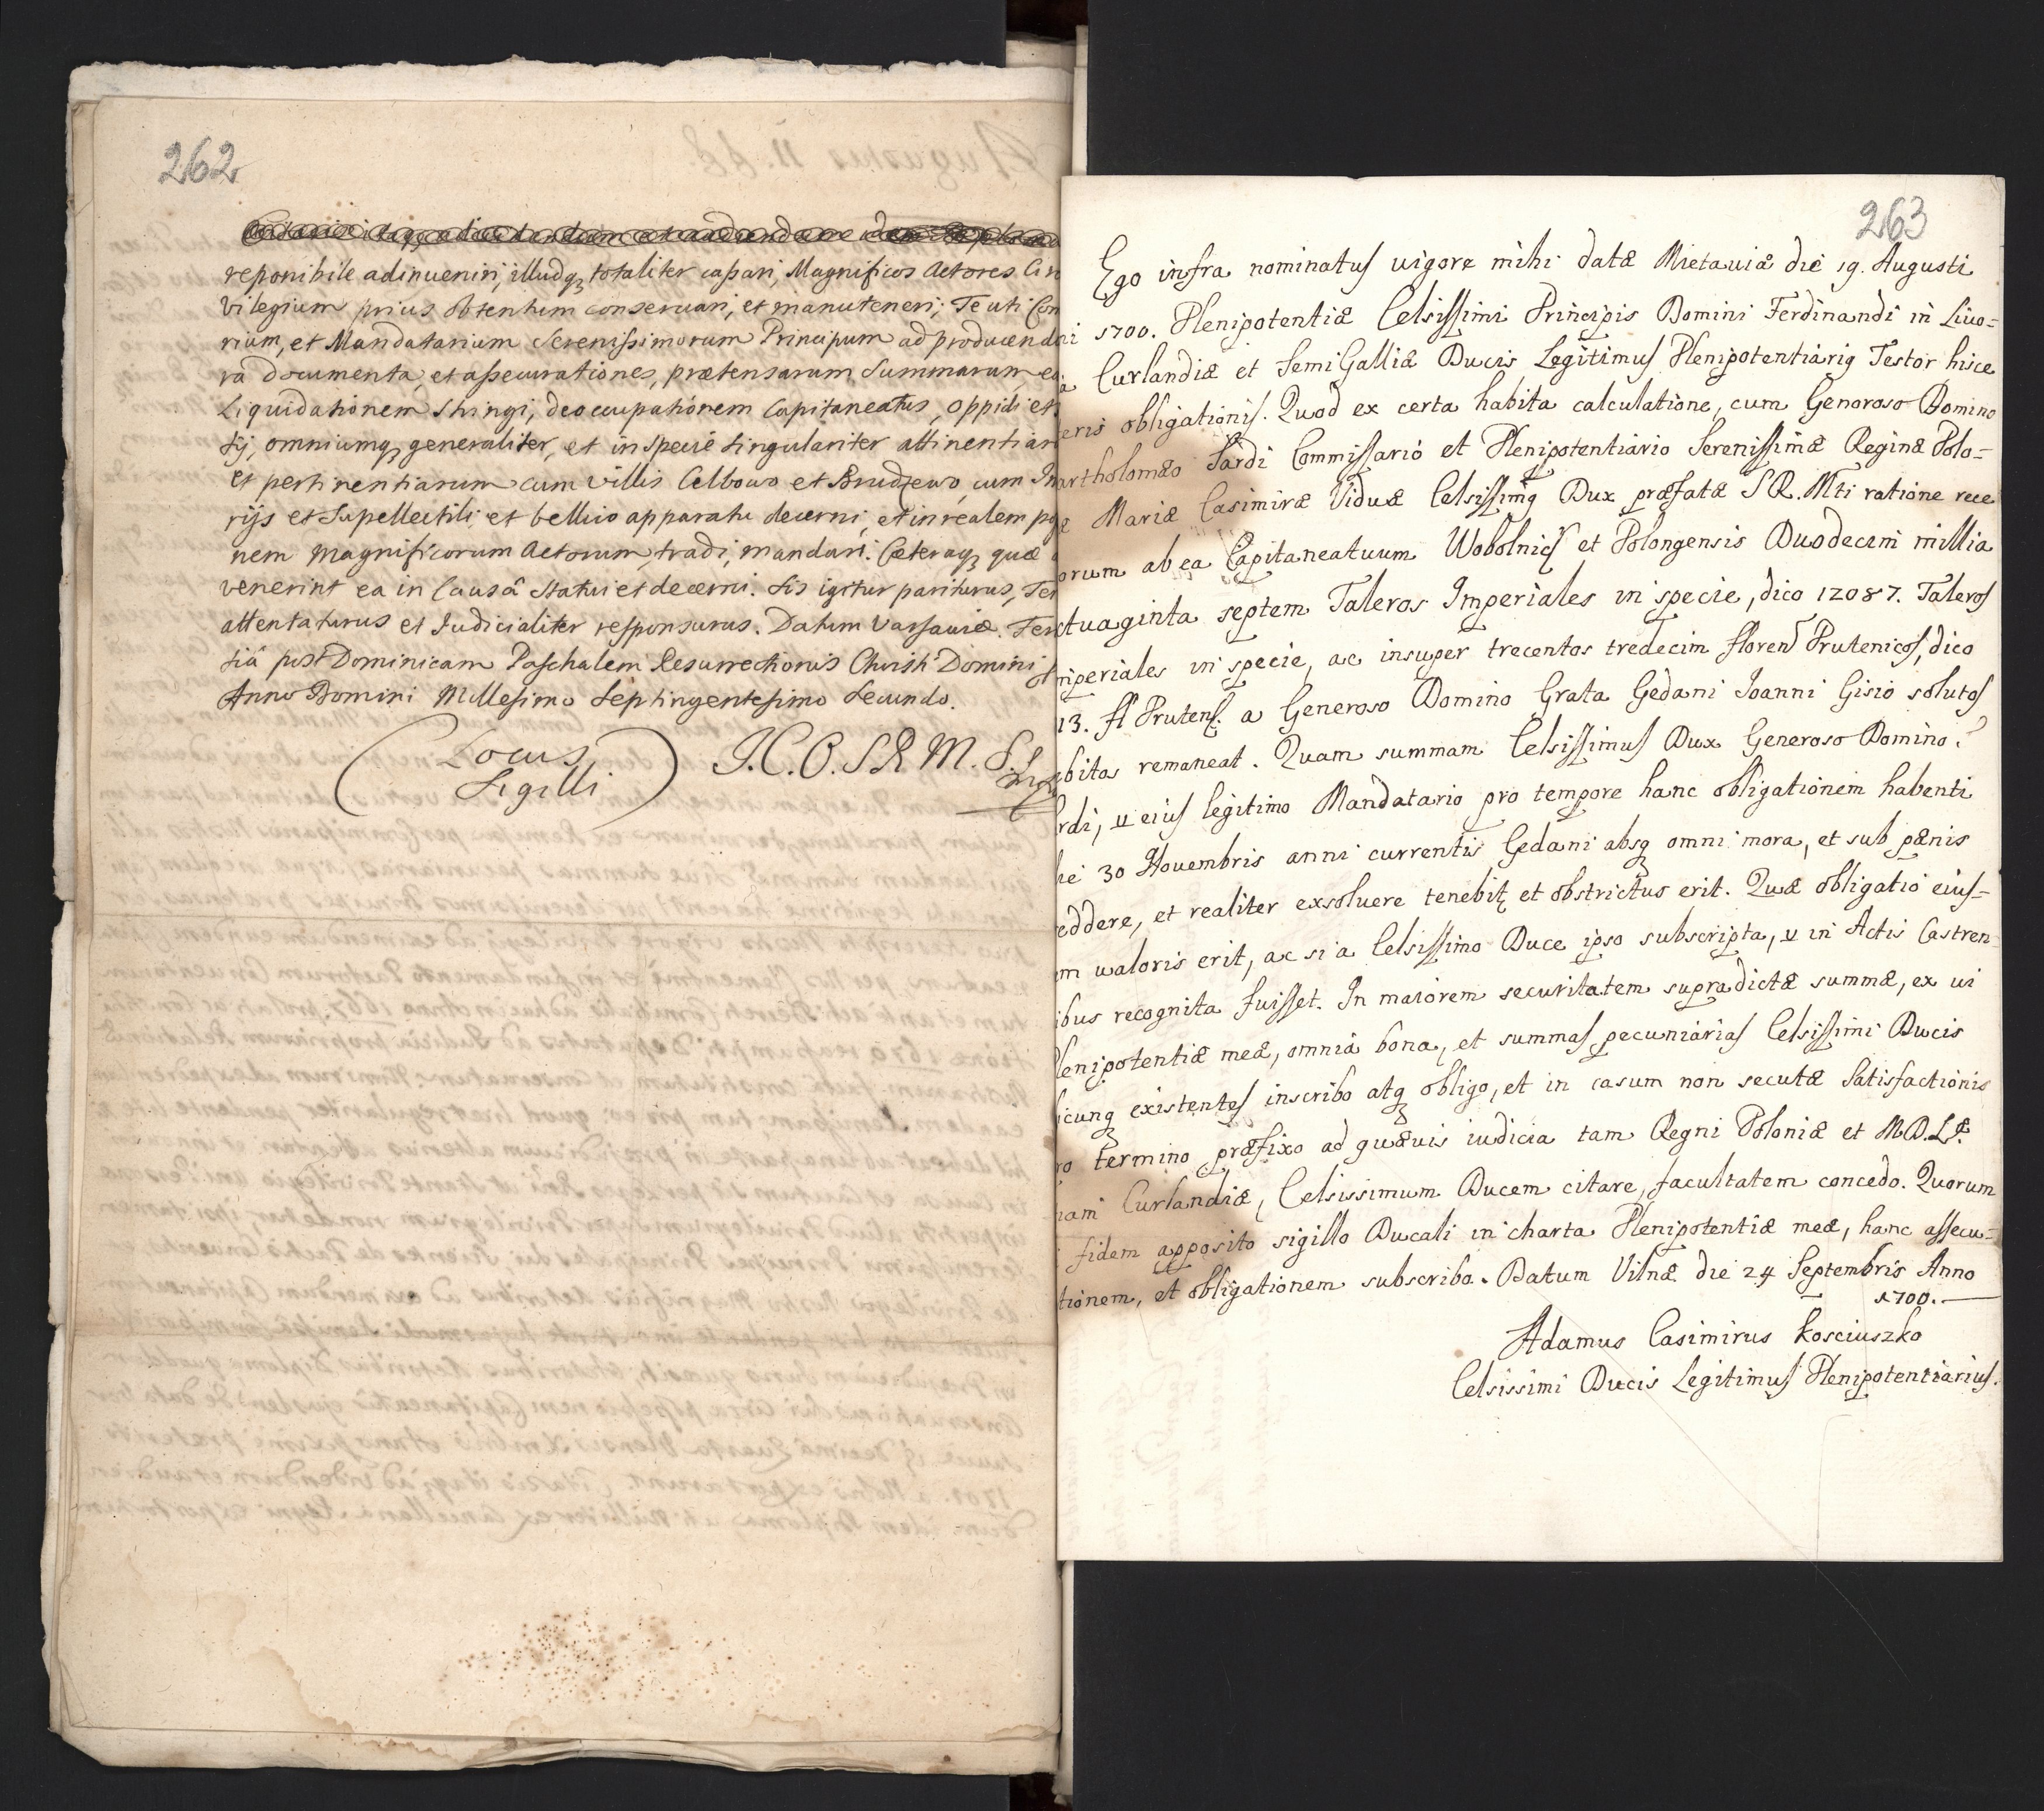 262
reponibile adinueniri, illudq, totaliter cassari, Magnificos Actores Cir
vilegium prius obtentum conseruari, et manuteneri; Te uti Com
rium, et Mandatarium Serenissimorum Principum ad producend
ra documenta, et assecurationes, prætensarum Summarum, e
Liquidationem Stringi, deoccupationem Capitaneatus, Oppidi et
tij, omniumq, generaliter, et in specie singulariter attinentiar
et pertinentiarum cum villis Celbowo et Brudzewo, cum In
rijs et Supellectili, et bellico apparatu decerni, et in realem po
nem Magnificorum Actorum, tradi, mandari. Cæteraq, quæ
venerint ea in Causâ Statui et decerni. Sis igitur pariturus, Ter
attentaturus et Iudicialiter responsurus. Datum Varsaviæ. Fer
tiâ post Dominicam Paschalem Resurrectionis Christi Domini
Anno Domini Millesimo Septingentesimo Secundo.
(Locus
Sigilli)
J. C. O. S R M. S.
263
Ego infra nominatus uigore mihi datæ Mietauiæ die 19. Augusti
ni 1700. Plenipotentiæ Celsissimi Principis Domini Ferdinandi in Liuo=
a Curlandiæ et SemiGalliæ Ducis Legitimus Plenipotentiarig Testor hisce
eris obligationis. Quod ex certa habita calculatione, cum Genoroso Domino
artholomæo Sardi Commissario et Plenipotentiario Serenissimæ Reginæ Polo=
æ Mariæ Casimiræ Viduæ Celsissimg Dux præfatæ S R. Mti ratione rece
orum ab ea Capitaneatuum Wobolnics et Polongensis Duodecim millia
ctuaginta septem Taleros Imperiales in specie, dico 12087. Taleros
mperiales in specie, ac insuper trecentos tredecim floren Prutenicos, dico
13. fl Prutens. a Generoso Domino Grata Gedani Ioanni Gisio solutos
ebitas remaneat. Quam summam Celsissimus Dux Generoso Domino
rdi, u eius legitimo Mandatario pro tempore hanc obligationem habenti
die 30 Nouembris anni currentis Gedani absq omni mora, et sub pænis
eddere, et realiter exsoluere tenebit et obstrictus erit. Quæ obligatio eius=
m ualoris erit, ac si a Celsissimo Duce ipso subscripta, u in Actis Castren
ibus recognita fuisset. In maiorem securitatem supradictæ summæ, ex ui
lenipotentiæ meæ, omnia bona, et summas pecuniarias Celsissimi Ducis
icunq existentes inscribo atq obligo, et in casum non secutæ Satisfactionis
ro termino præfixo ad quæuis iudicia tam Regni Poloniæ et M.D.L.
iam Curlandiæ, Celsissimum Ducem citare, facultatem concedo. Quorum
fidem apposito sigillo Ducali in charta Plenipotentiæ meæ, hanc assecu=
tionem, et obligationem subscribo. Datum Vilnæ die 24 Septembris Anno
1700.
Adamus Casimirus Kosciuszko
Celsissimi Ducis Legitimus Plenipotentiarius.